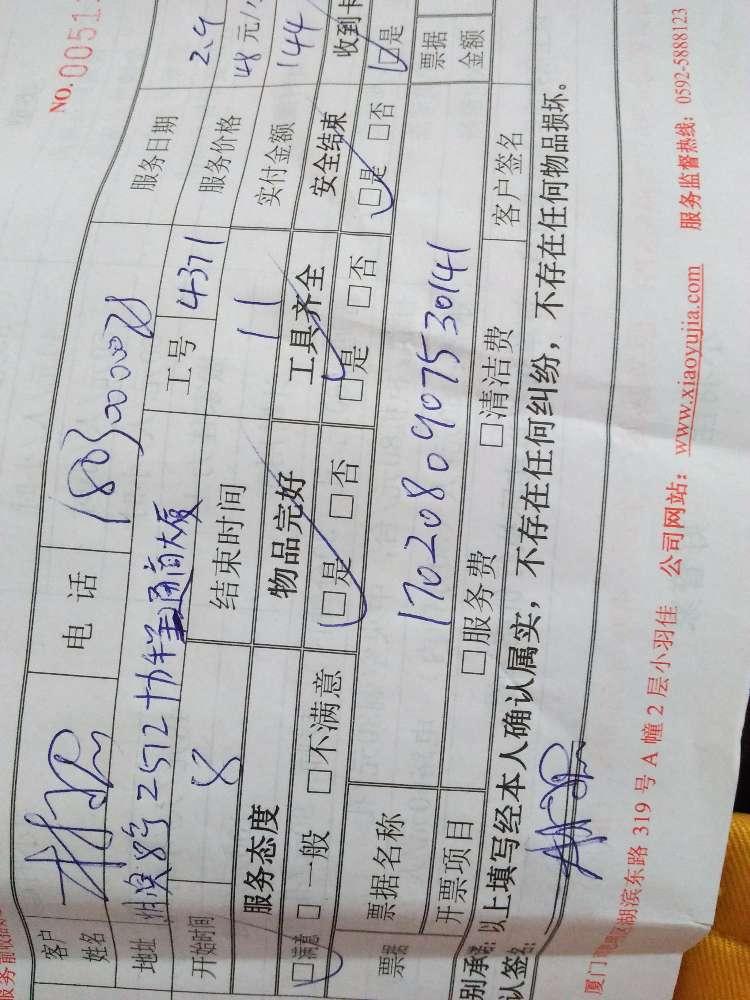 NO.0051
客户姓名 电话 18030000078 服务日期 2.9
地址 2512 协牲通商大厦 工号 4371 服务价格 48元/
开始时间 8 结束时间 11 实付金额 144
服务态度 物品完好 工具齐全 安全结束 收到卡
□满意 □一般 □不满意 □是 □否 □是 □否 □是 □否 □是
票据 票据名称 1702080907530141 票据金额
开票项目 □服务费 □清洁费 客户签名
以上填写经本人确认属实，不存在任何纠纷，不存在任何物品损坏。
认签名:
湖滨东路 319 号 A 幢 2 层小羽佳 公司网站：www.xiaoyujia.com 服务监督热线：0592-5888123